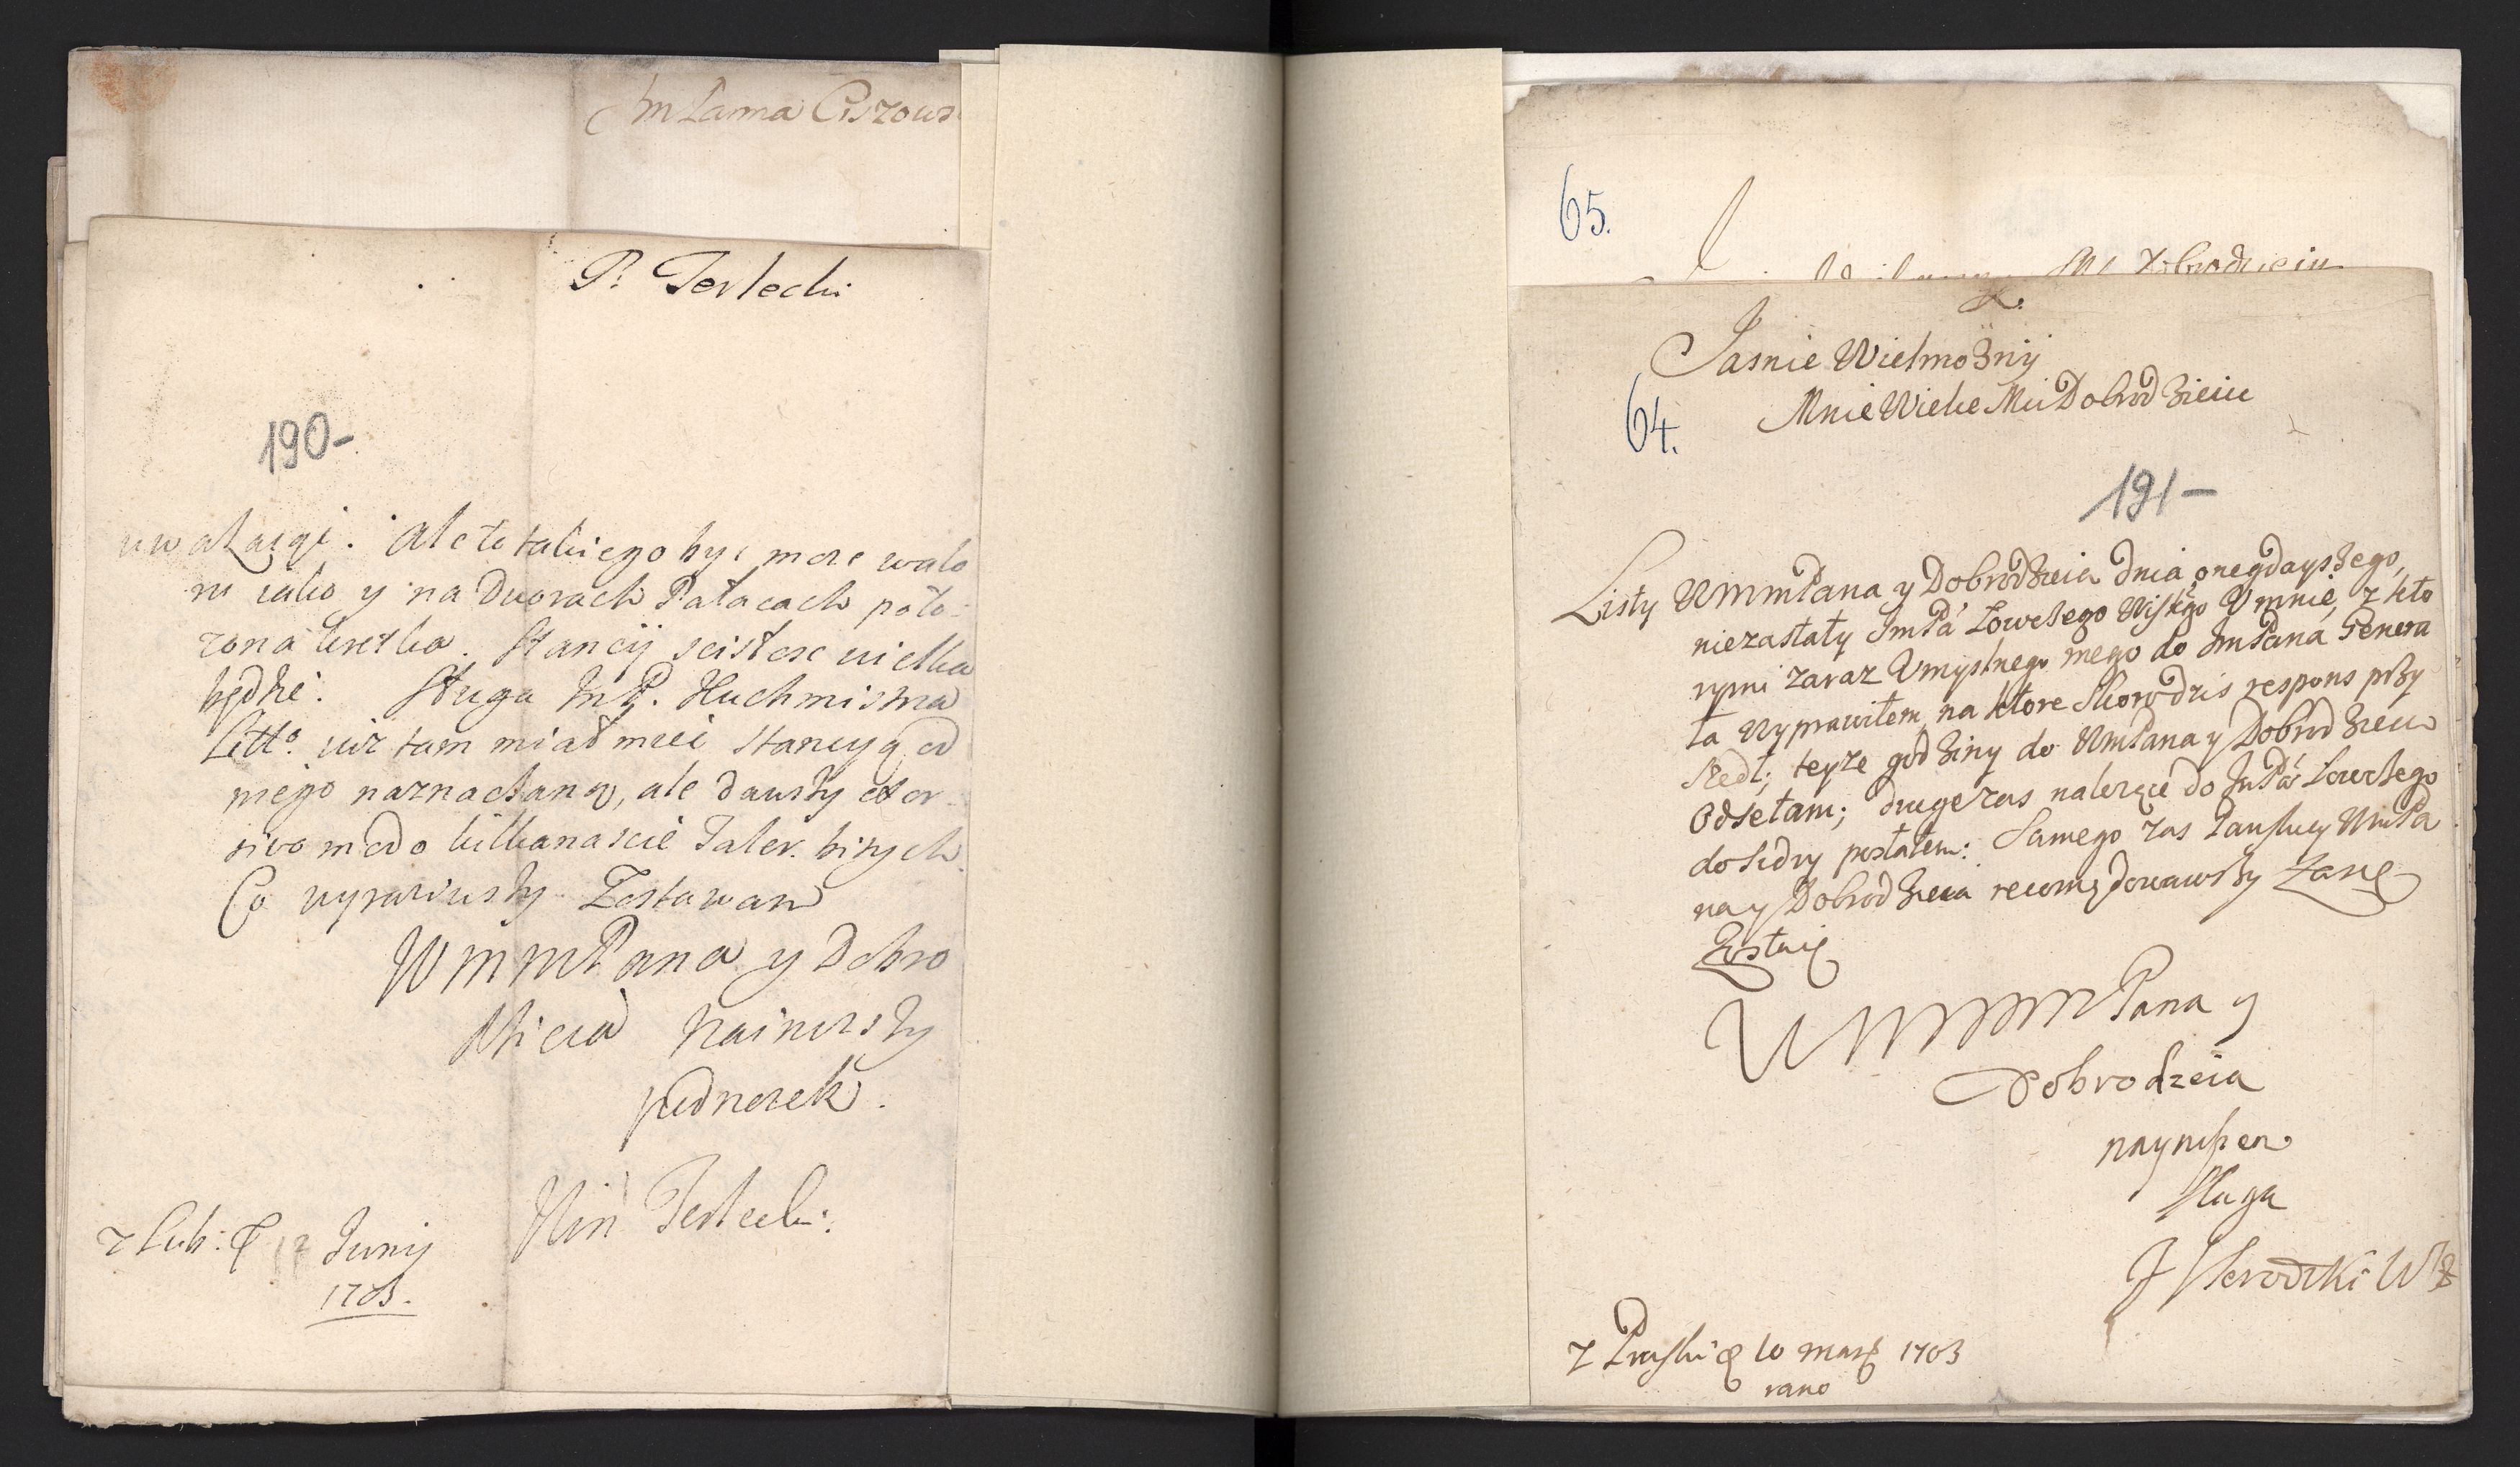 ImPana Ciszows
P. Terlecki
190-
uwaząiąc. Ale to takiego byc moze walo
ru iako y na Dworach Pałacach poło-
zona kreska. Stancij scisłosc wielka
będzie. Sługa ImP. Kuchmistrza
Litto. iuz tam miał miec stancyą od
niego naznaczaną, ale dawszy
sivo modo kilkanascie Taler. bitych
Co wyraziwszy Zostawam
WMMPana y Dobro
dzieia nainizszy
podnozek.
Terlecki
z Lub: D 12 Junij
1703.
65.
Dobrodzieiu
Jasnie Wielmozny
Mnie Wielce Mci Dobrodzieiu
64.
191-
Listy WMMPana y Dobrodzieia dnia onegdayszego,
niezastały ImPa Łowczego U mnie, z kto
rymi zaraz Umyslnego mego do ImPana Genera
ła Wyprawiłem, na ktore skoro dzis respons przy
szedł; teyze godziny do WmPana y Dobrodzieia
Odsełam; drugie zas nalezące do ImPa Łowczego
do Lidy posłałem: Samego zas Łaskiey WmPa
na y Dobrodzieia recomędowawszy Zawsze
Zostaię
WMMPana y
Dobrodzieia
naynizszem
sługa
Z Pruski D 10 mars 1703
rano